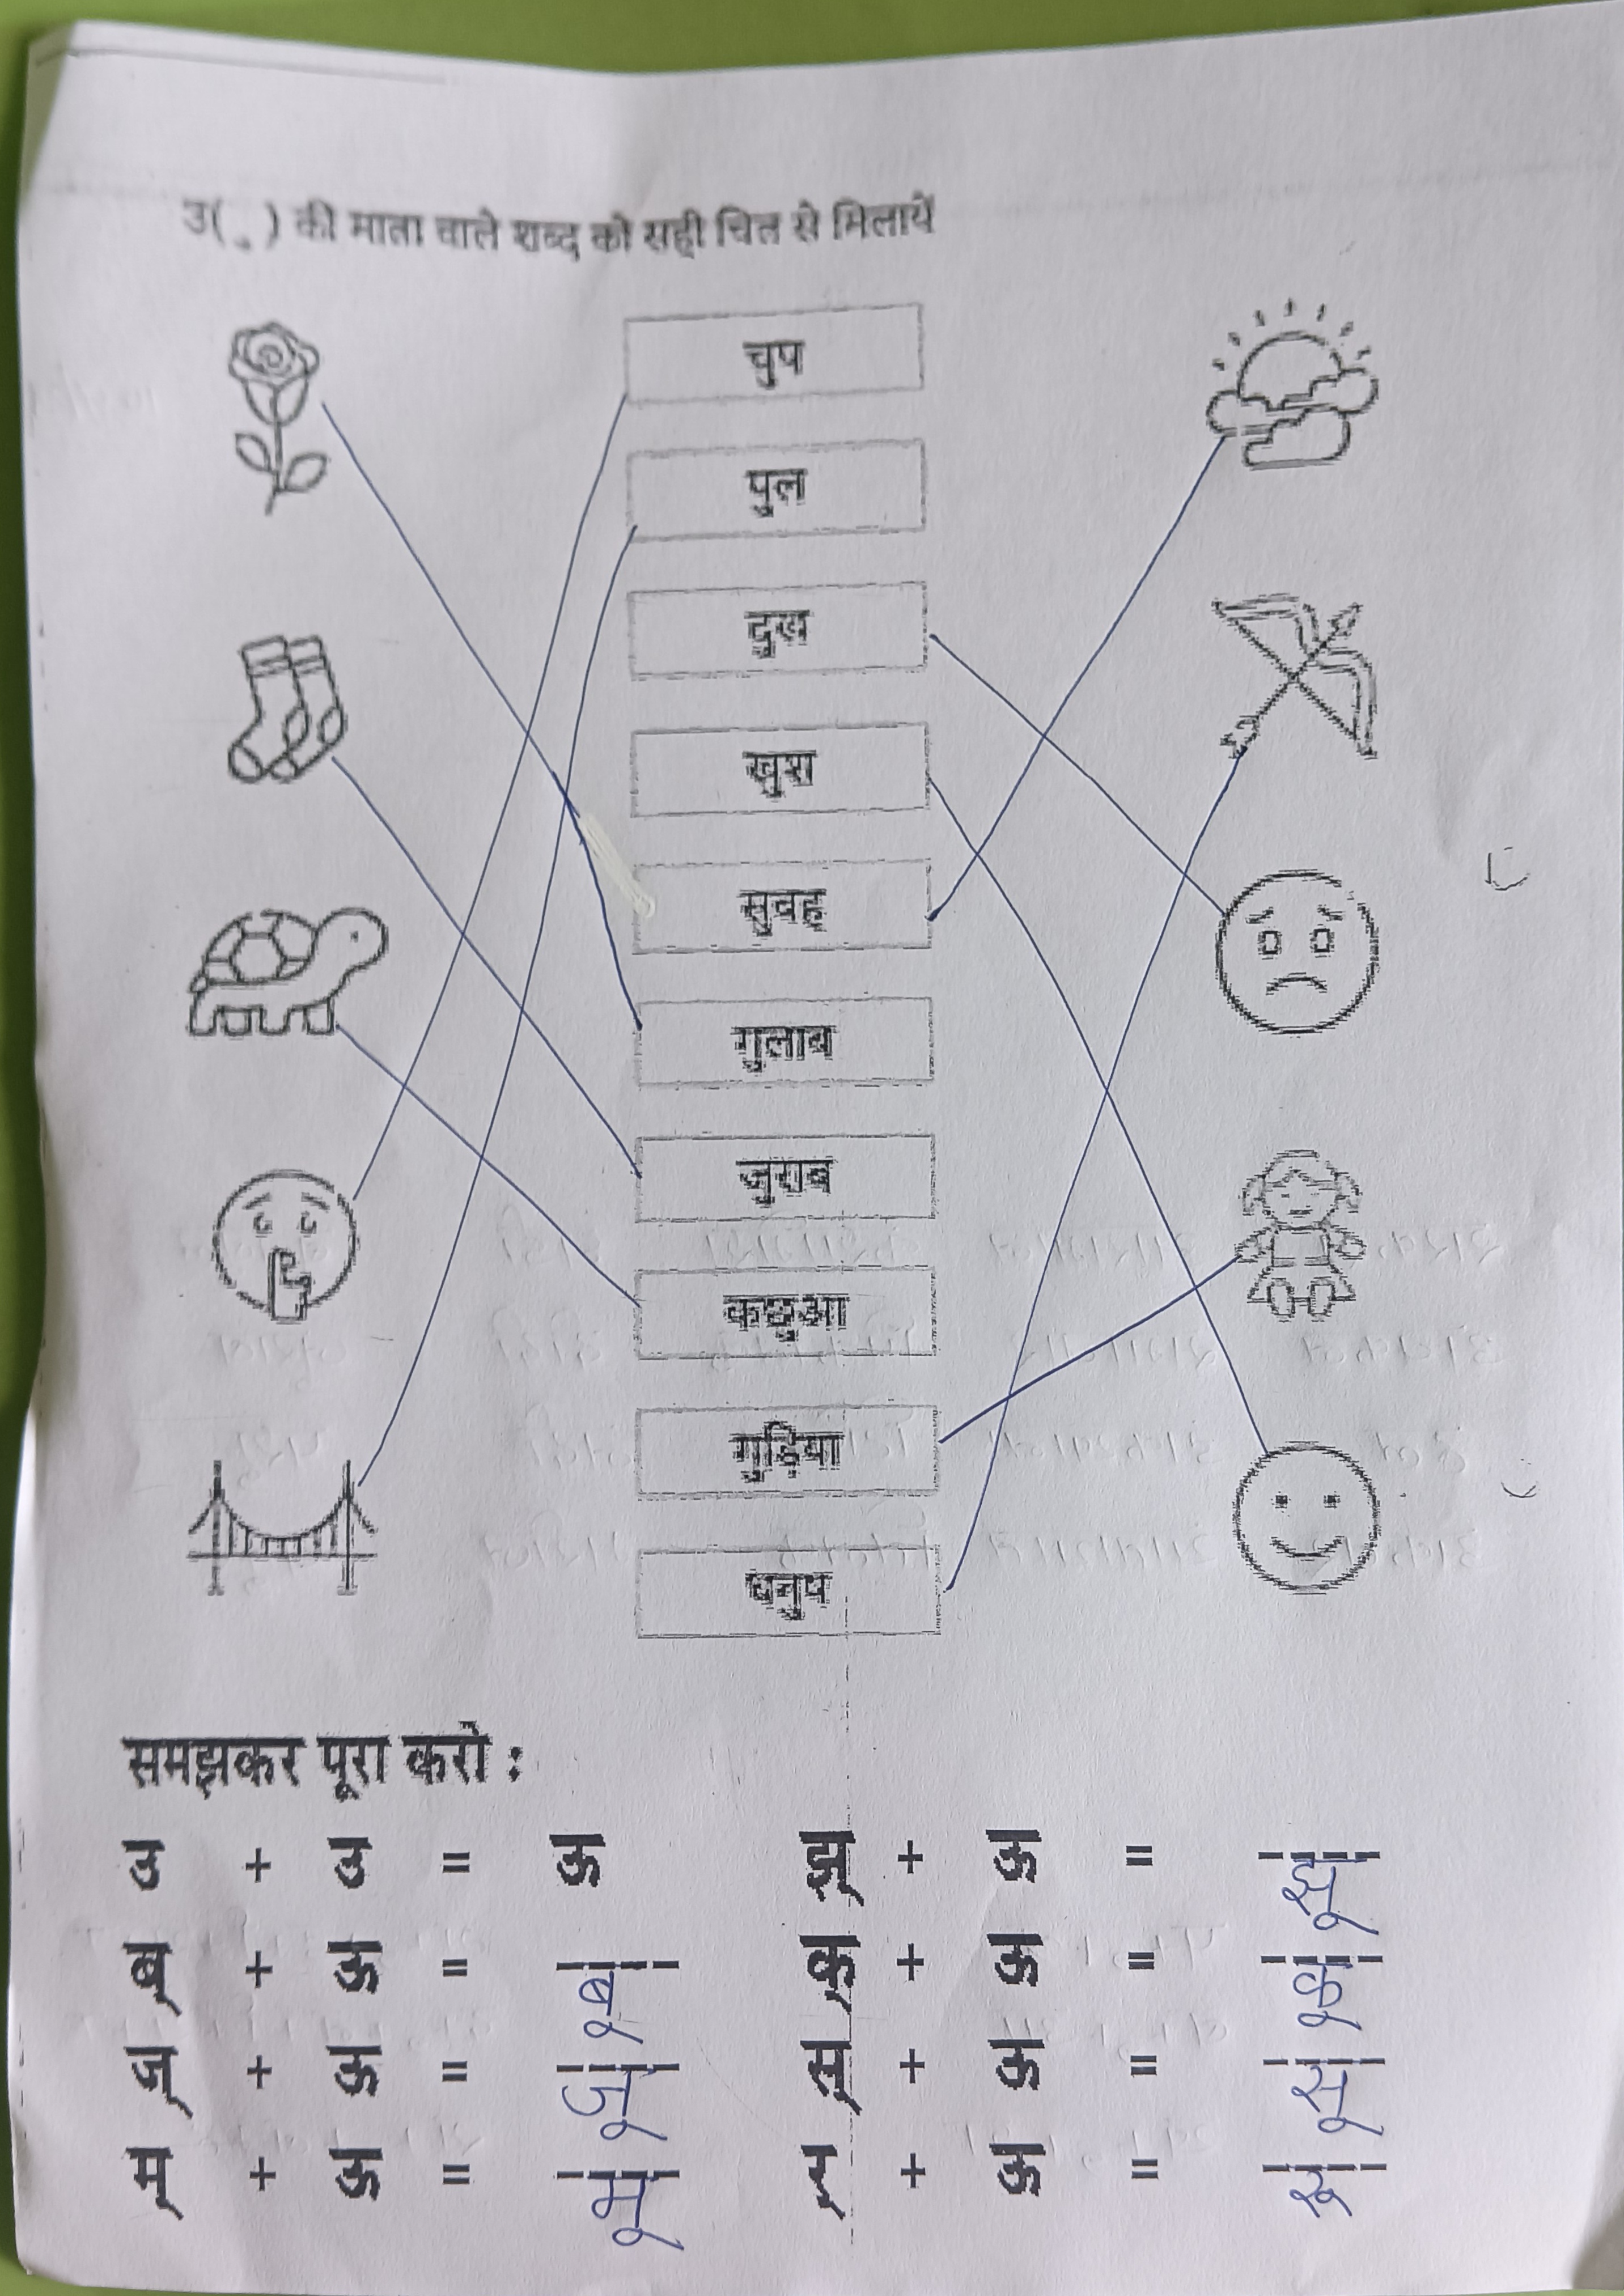 उ( ु ) की मात्रा वाले शब्द को सही चित्र से मिलायें
चुप
पुल
दुख
खुश
सुबह
गुलाब
जुराब
कछुआ
गुड़िया
धनुष
समझकर पूरा करो :
उ + उ = ऊ
ब् + ऊ = बू
ज् + ऊ = जू
म् + ऊ = मू
+ ऊ =
क् + ऊ = कू
स् + ऊ = सू
र् + ऊ = रू